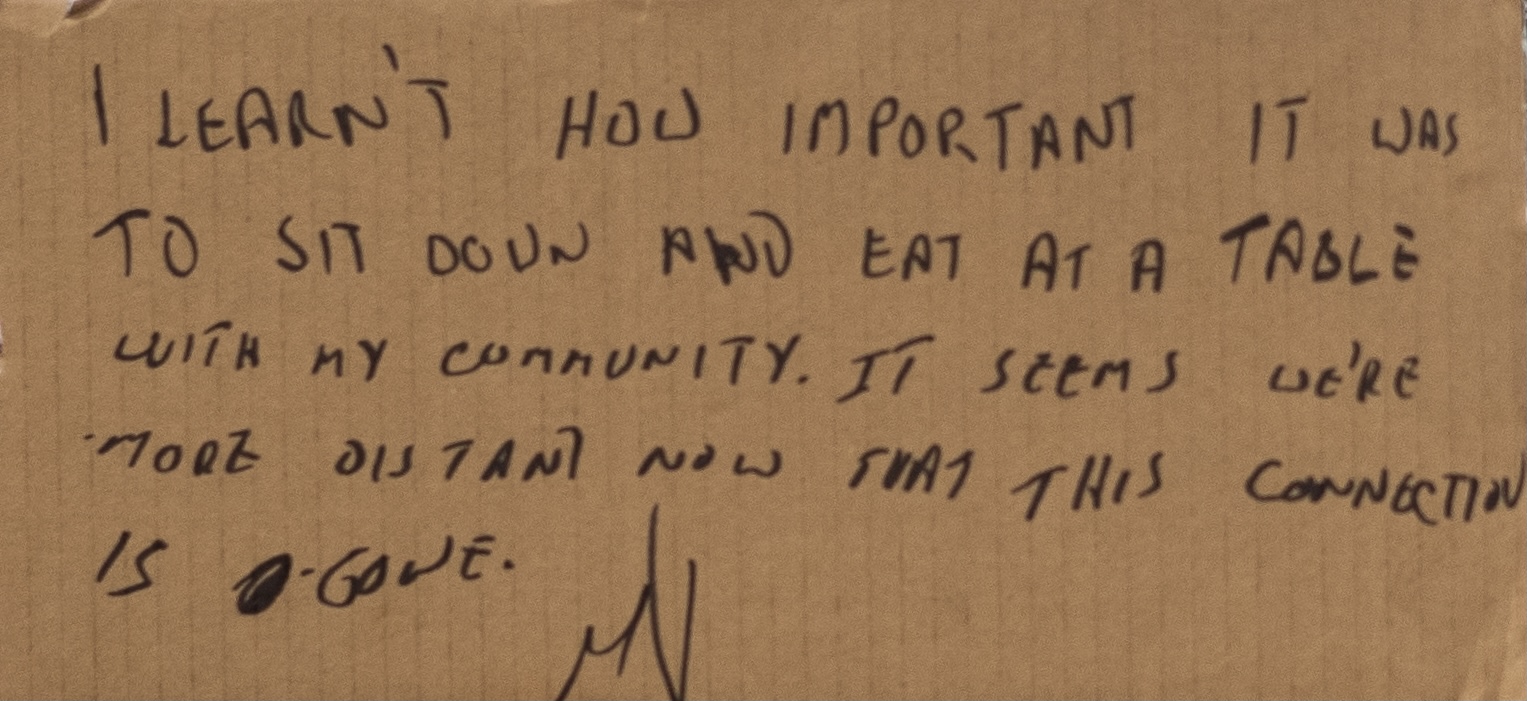 I LEARN'T HOW IMPORTANT IT WAS
TO SIT DOWN AND EAT AT A TABLE
WITH MY COMMUNITY. IT SEEMS WE'RE
MORE DISTANT NOW THAT THIS CONNECTION
IS GONE.